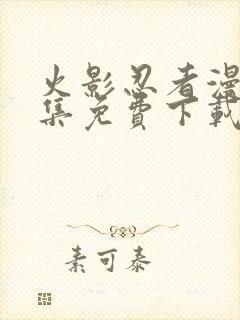 火影忍者漫
集免费下载
素可泰